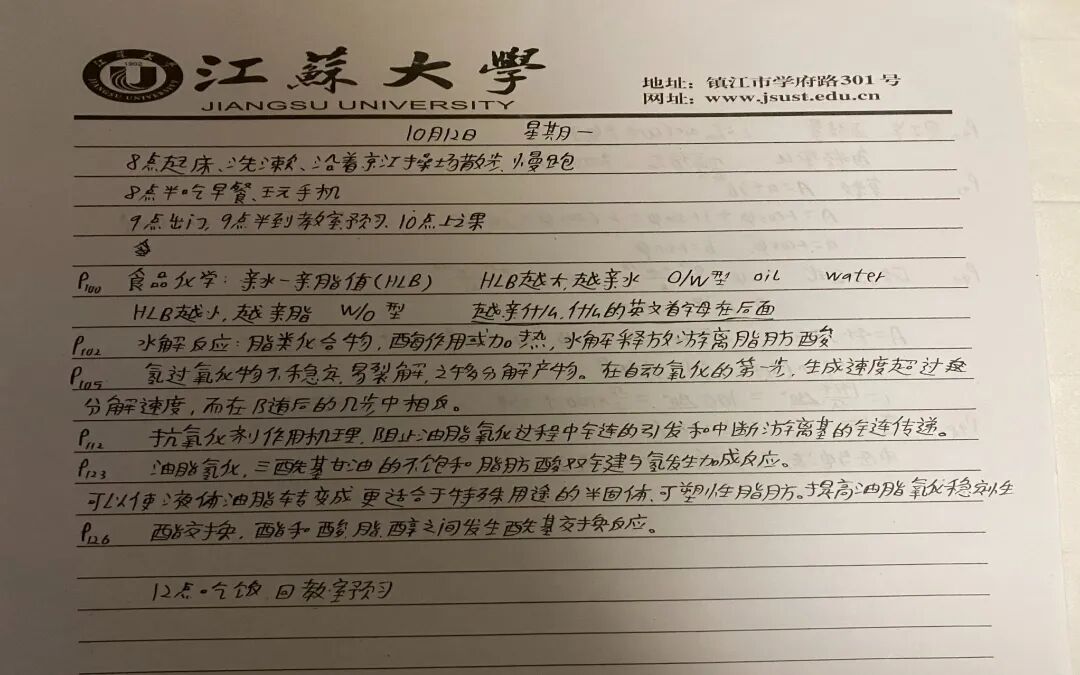 江蘇大學
JIANGSU UNIVERSITY
地址：镇江市学府路301号
网址：www.jsust.edu.cn
10月12日 星期一
8点起床、洗漱、沿着京江操场散步、慢跑
8点半吃早餐、玩手机
9点出门，9点半到教室预习、10点上课
P100 食品化学：亲水-亲脂值（HLB） HLB越大，越亲水 O/W型 oil water
HLB越小，越亲脂 W/O型 越亲什么，什么的英文首字母在后面
P102 水解反应：脂类化合物，酶作用或加热，水解释放游离脂肪酸
P105 氢过氧化物不稳定，易裂解，之多分解产物。在自动氧化的第一步，生成速度超过
分解速度，而在随后的几步中相反。
P112 抗氧化剂作用机理，阻止油脂氧化过程中链的引发和中断游离基的链传递。
P123 油脂氢化，三酰基甘油的不饱和脂肪酸双键与氢发生加成反应。
可以使液体油脂转变成更适合于特殊用途的半固体、可塑性脂肪。提高油脂氧化稳定性
P126 酯交换，酯和酸、脂、醇之间发生酰基交换反应。
12点吃饭 回教室预习